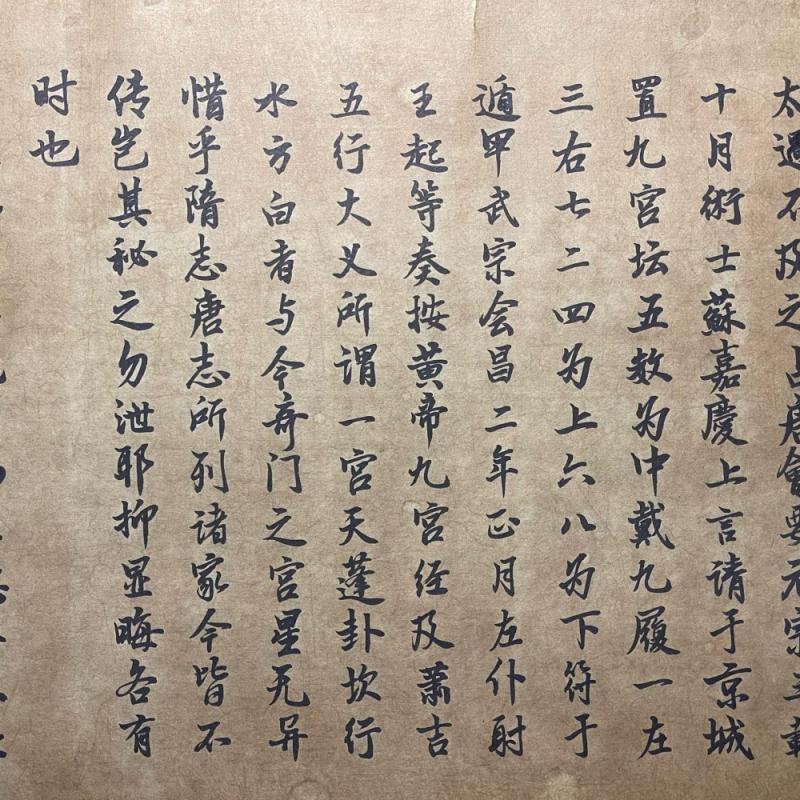 太过不及之占唐會要元宗三載
十月術士蘇嘉慶上言请于京城
置九宫坛五数为中戴九履一左
三右七二四为上六八为下符于
遁甲武宗会昌二年正月左仆射
王起等奏按黄帝九宫经及萧吉
五行大义所谓一宫天蓬卦坎行
水方白者与今奇门之宫星无异
惜乎隋志唐志所列诸家今皆不
传岂其秘之勿泄耶抑显晦各有
时也